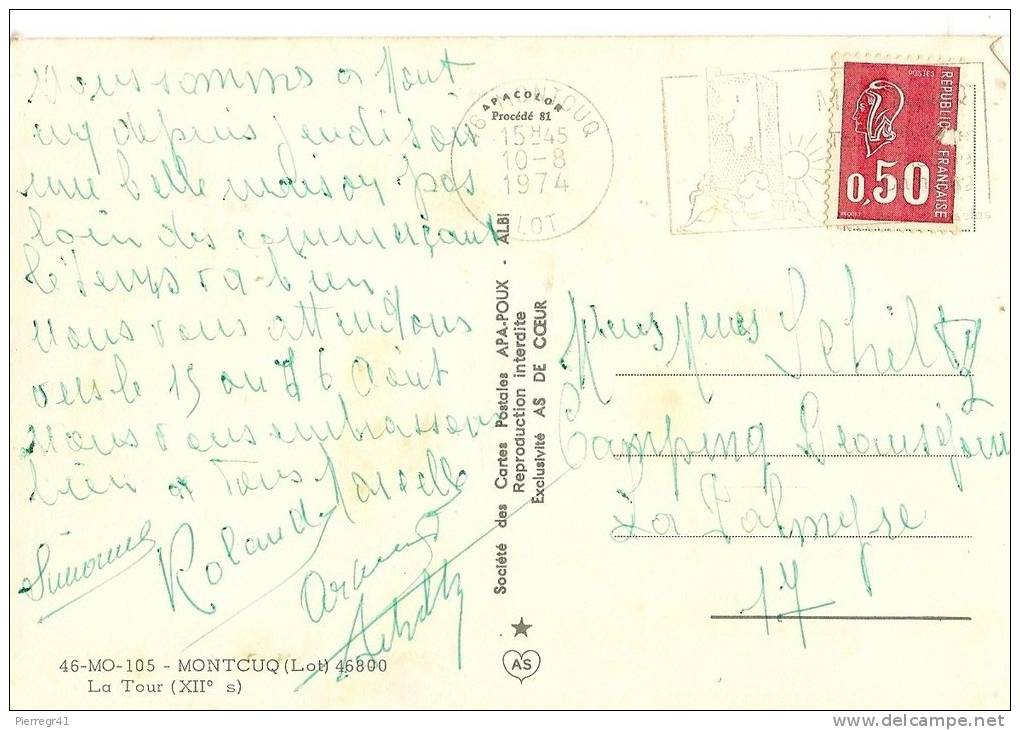 Nous sommes a Mont
cuq depuis jeudi soir
une belle maison pas
loin des commerçant
le temps va bien
nous vous attendons
vers le 15 ou 16 Août
nous vous embrassons
bien a tous Marcelle
Simonne
Roland
APACOLOR
Procédé 81
46 MONTCUQ
15H45
10-8
1974
LOT
POSTES
REPUBLIQUE FRANÇAISE
0,50
Société des Cartes Postales APA-POUX - ALBI
Reproduction interdite
Exclusivité AS DE CŒUR
AS
Camping Beauséjour
La Palmyre
17
46-MO-105 - MONTCUQ (Lot) 46800
La Tour (XII° s)
Pierregr41
www.delcampe.net